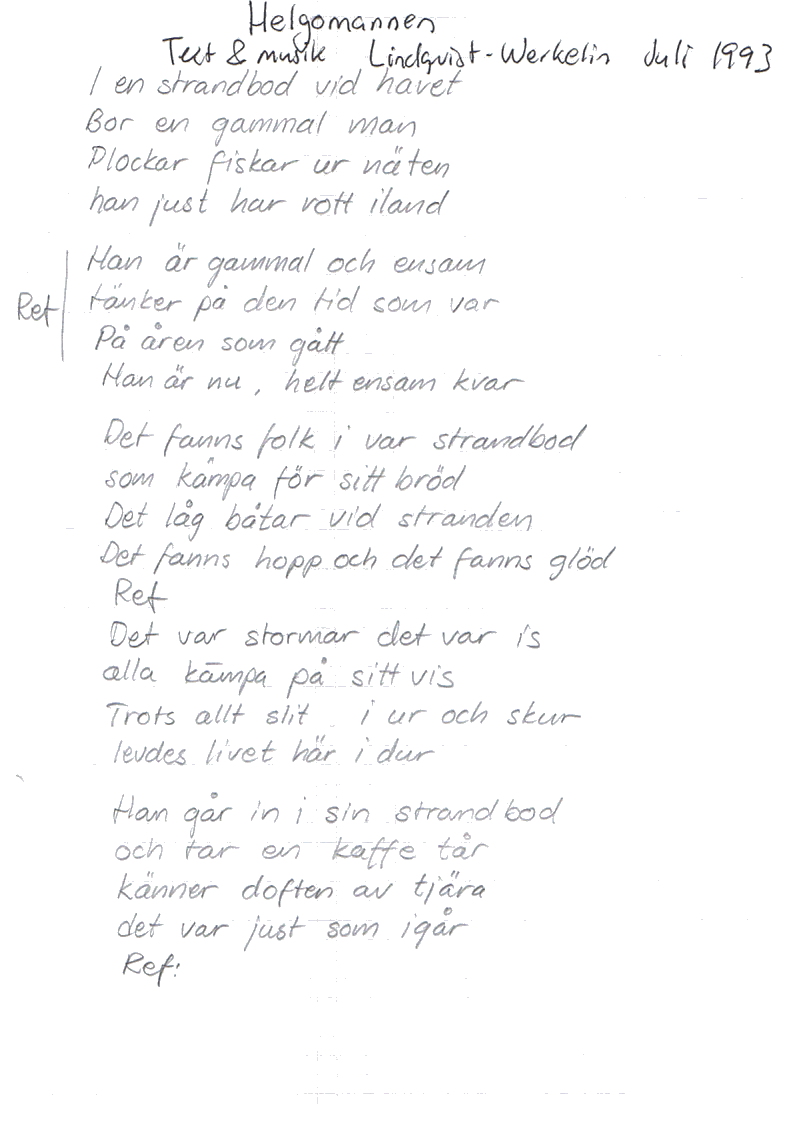 Helgomannen
Text & musik Lindqvist-Werkelin Juli 1993
I en strandbod vid havet
Bor en gammal man
Plockar fiskar ur näten
han just har rott iland
Han är gammal och ensam
Ref tänker på den tid som var
På åren som gått
Han är nu, helt ensam kvar
Det fanns folk i var strandbod
som kämpa för sitt bröd
Det låg båtar vid stranden
Det fanns hopp och det fanns glöd
Ref
Det var stormar det var is
alla kämpa på sitt vis
Trots allt slit i ur och skur
levdes livet här i dur
Han går in i sin strandbod
och tar en kaffe tår
känner doften av tjära
det var just som igår
Ref: